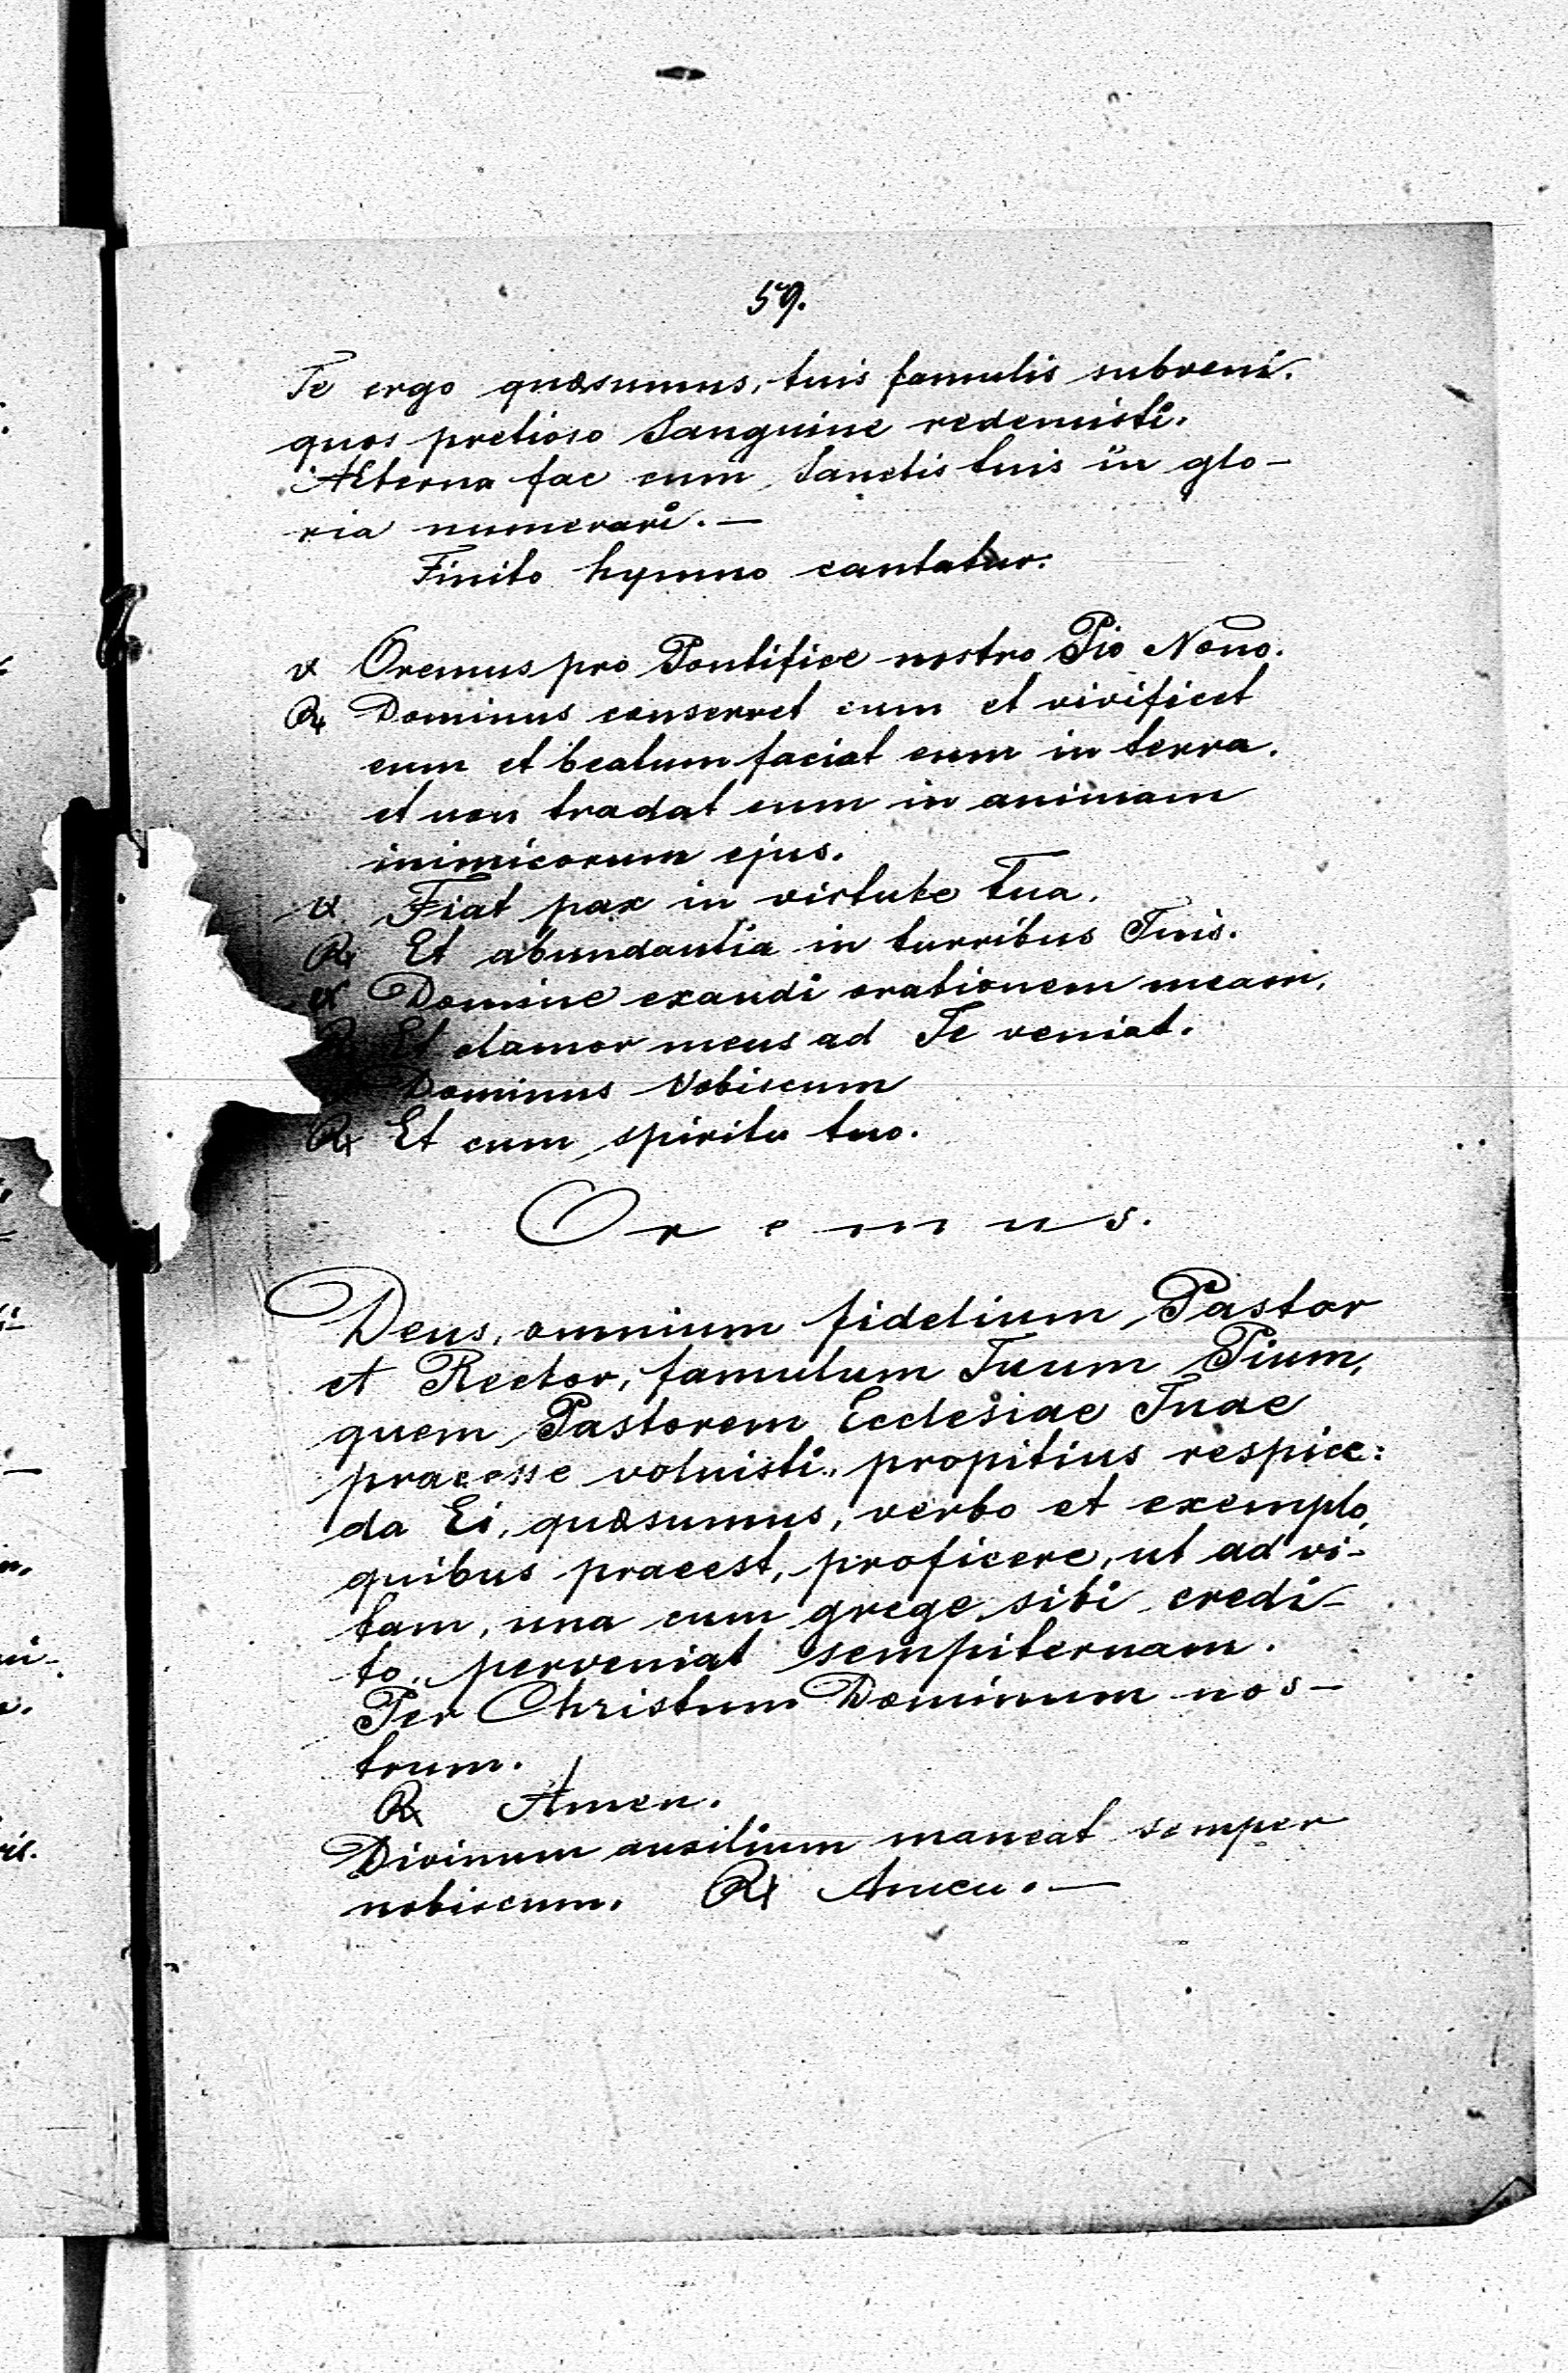 59.
Te ergo quæsumus, tuis famulis subveni.
quos pretioso Sanguine redemisti.
Æterna fac cum Sanctis tuis in glo-
ria numerari. —
Finito hymno cantatur:
℣ Oremus pro Pontifice nostro Pio Nono.
℟ Dominus conservet eum et vivificet
eum et beatum faciat eum in terra.
et non tradat eum in animam
inimicorum ejus.
℣ Fiat pax in virtute Tua.
℟ Et abundantia in turribus Tuis.
℣ Domine exaudi orationem meam,
℟ Et clamor meus ad Te veniat.
Dominus Vobiscum
℟ Et cum spiritu tuo.
Oremus.
Deus, omnium fidelium Pastor
et Rector, famulum Tuum Pium,
quem Pastorem Ecclesiae Tuae
praeesse voluisti, propitius respice:
da Ei, quæsumus, verbo et exemplo,
quibus praeest, proficere, ut ad vi-
tam, una cum grege sibi credi-
to, perveniat sempiternam.
Per Christum Dominum nos-
trum.
℟ Amen.
Divinum auxilium maneat semper
nobiscum. ℟ Amen. —